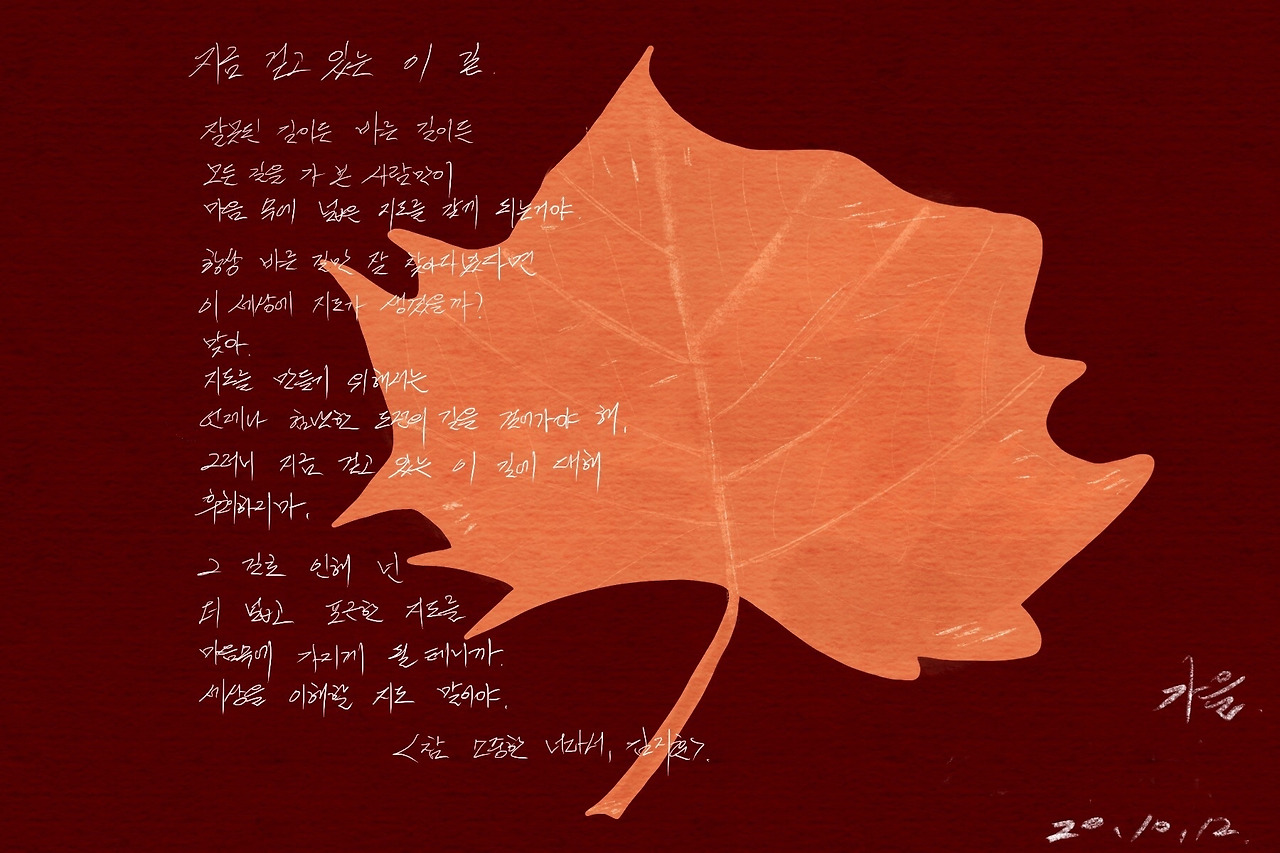 지금 걷고 있는 이 길.
잘못된 길이든 바른 길이든
모든 길을 가 본 사람만이
마음 속에 넓은 지도를 갖게 되는거야.
항상 바른 길만 잘 찾아다녔다면
이 세상에 지도가 생겼을까?
맞아.
지도를 만들기 위해서는
언제나 참신한 도전의 길을 걸어가야 해.
그러니 지금 걷고 있는 이 길에 대해
후회하지마.
그 길로 인해 넌
더 넓고 포근한 지도를
마음속에 가지게 될 테니까.
세상을 이해할 지도 말이야.
<참 소중한 너라서, 김지훈>.
가을.
20.10.12.